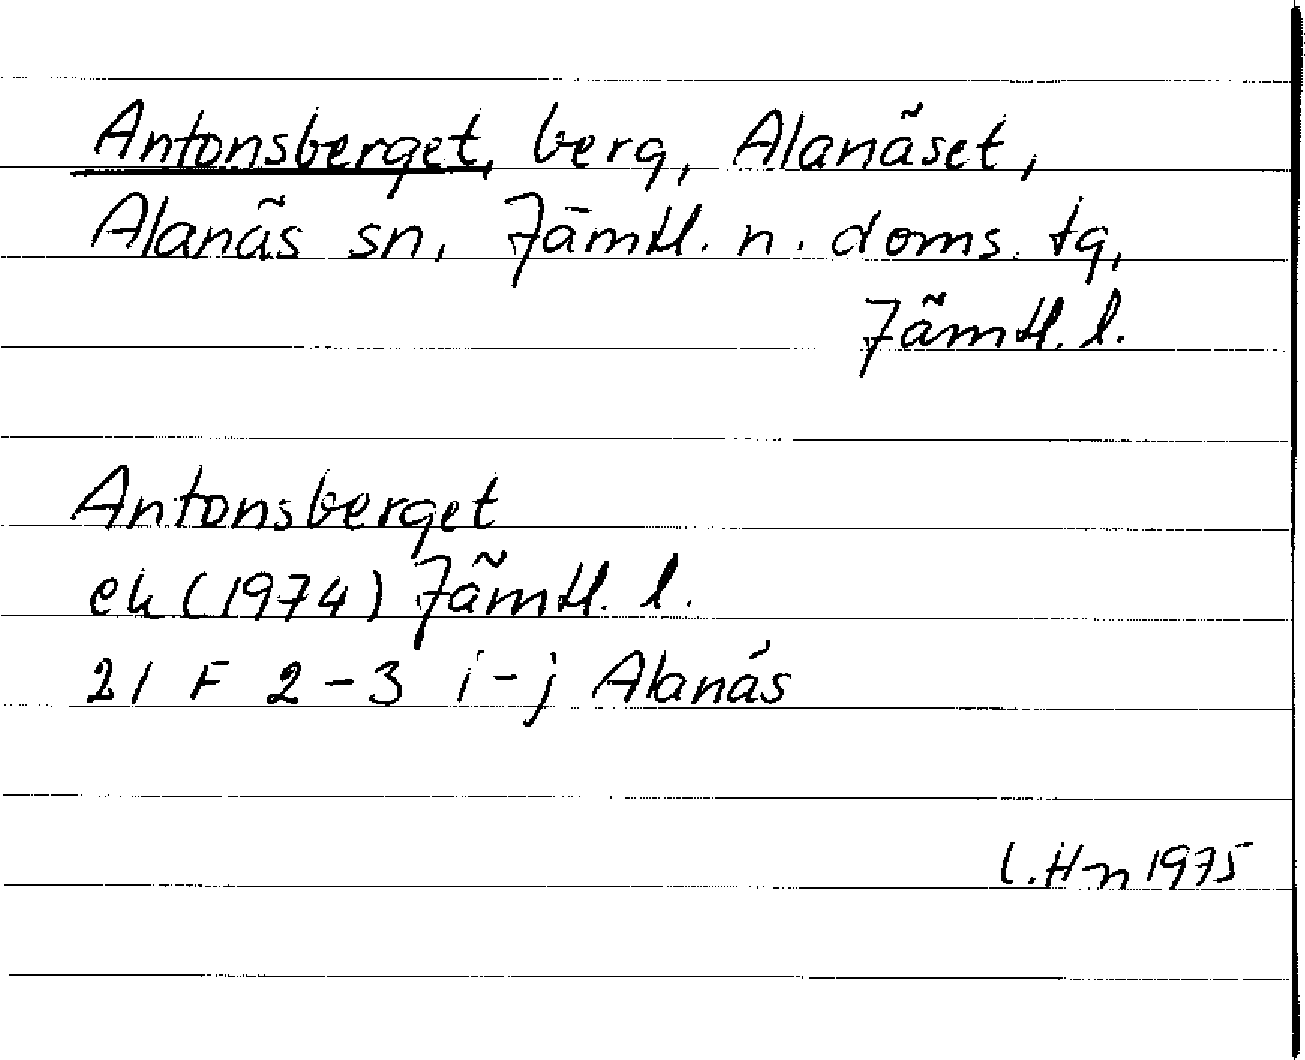 Antonsberget, berg, Alanäset,
Alanäs sn, Jämtl. n. doms. tg,
Jämtl. l.
Antonsberget
ek (1974) Jämtl. l.
21 F 2-3 i-j Alanäs
C. Hn 1975